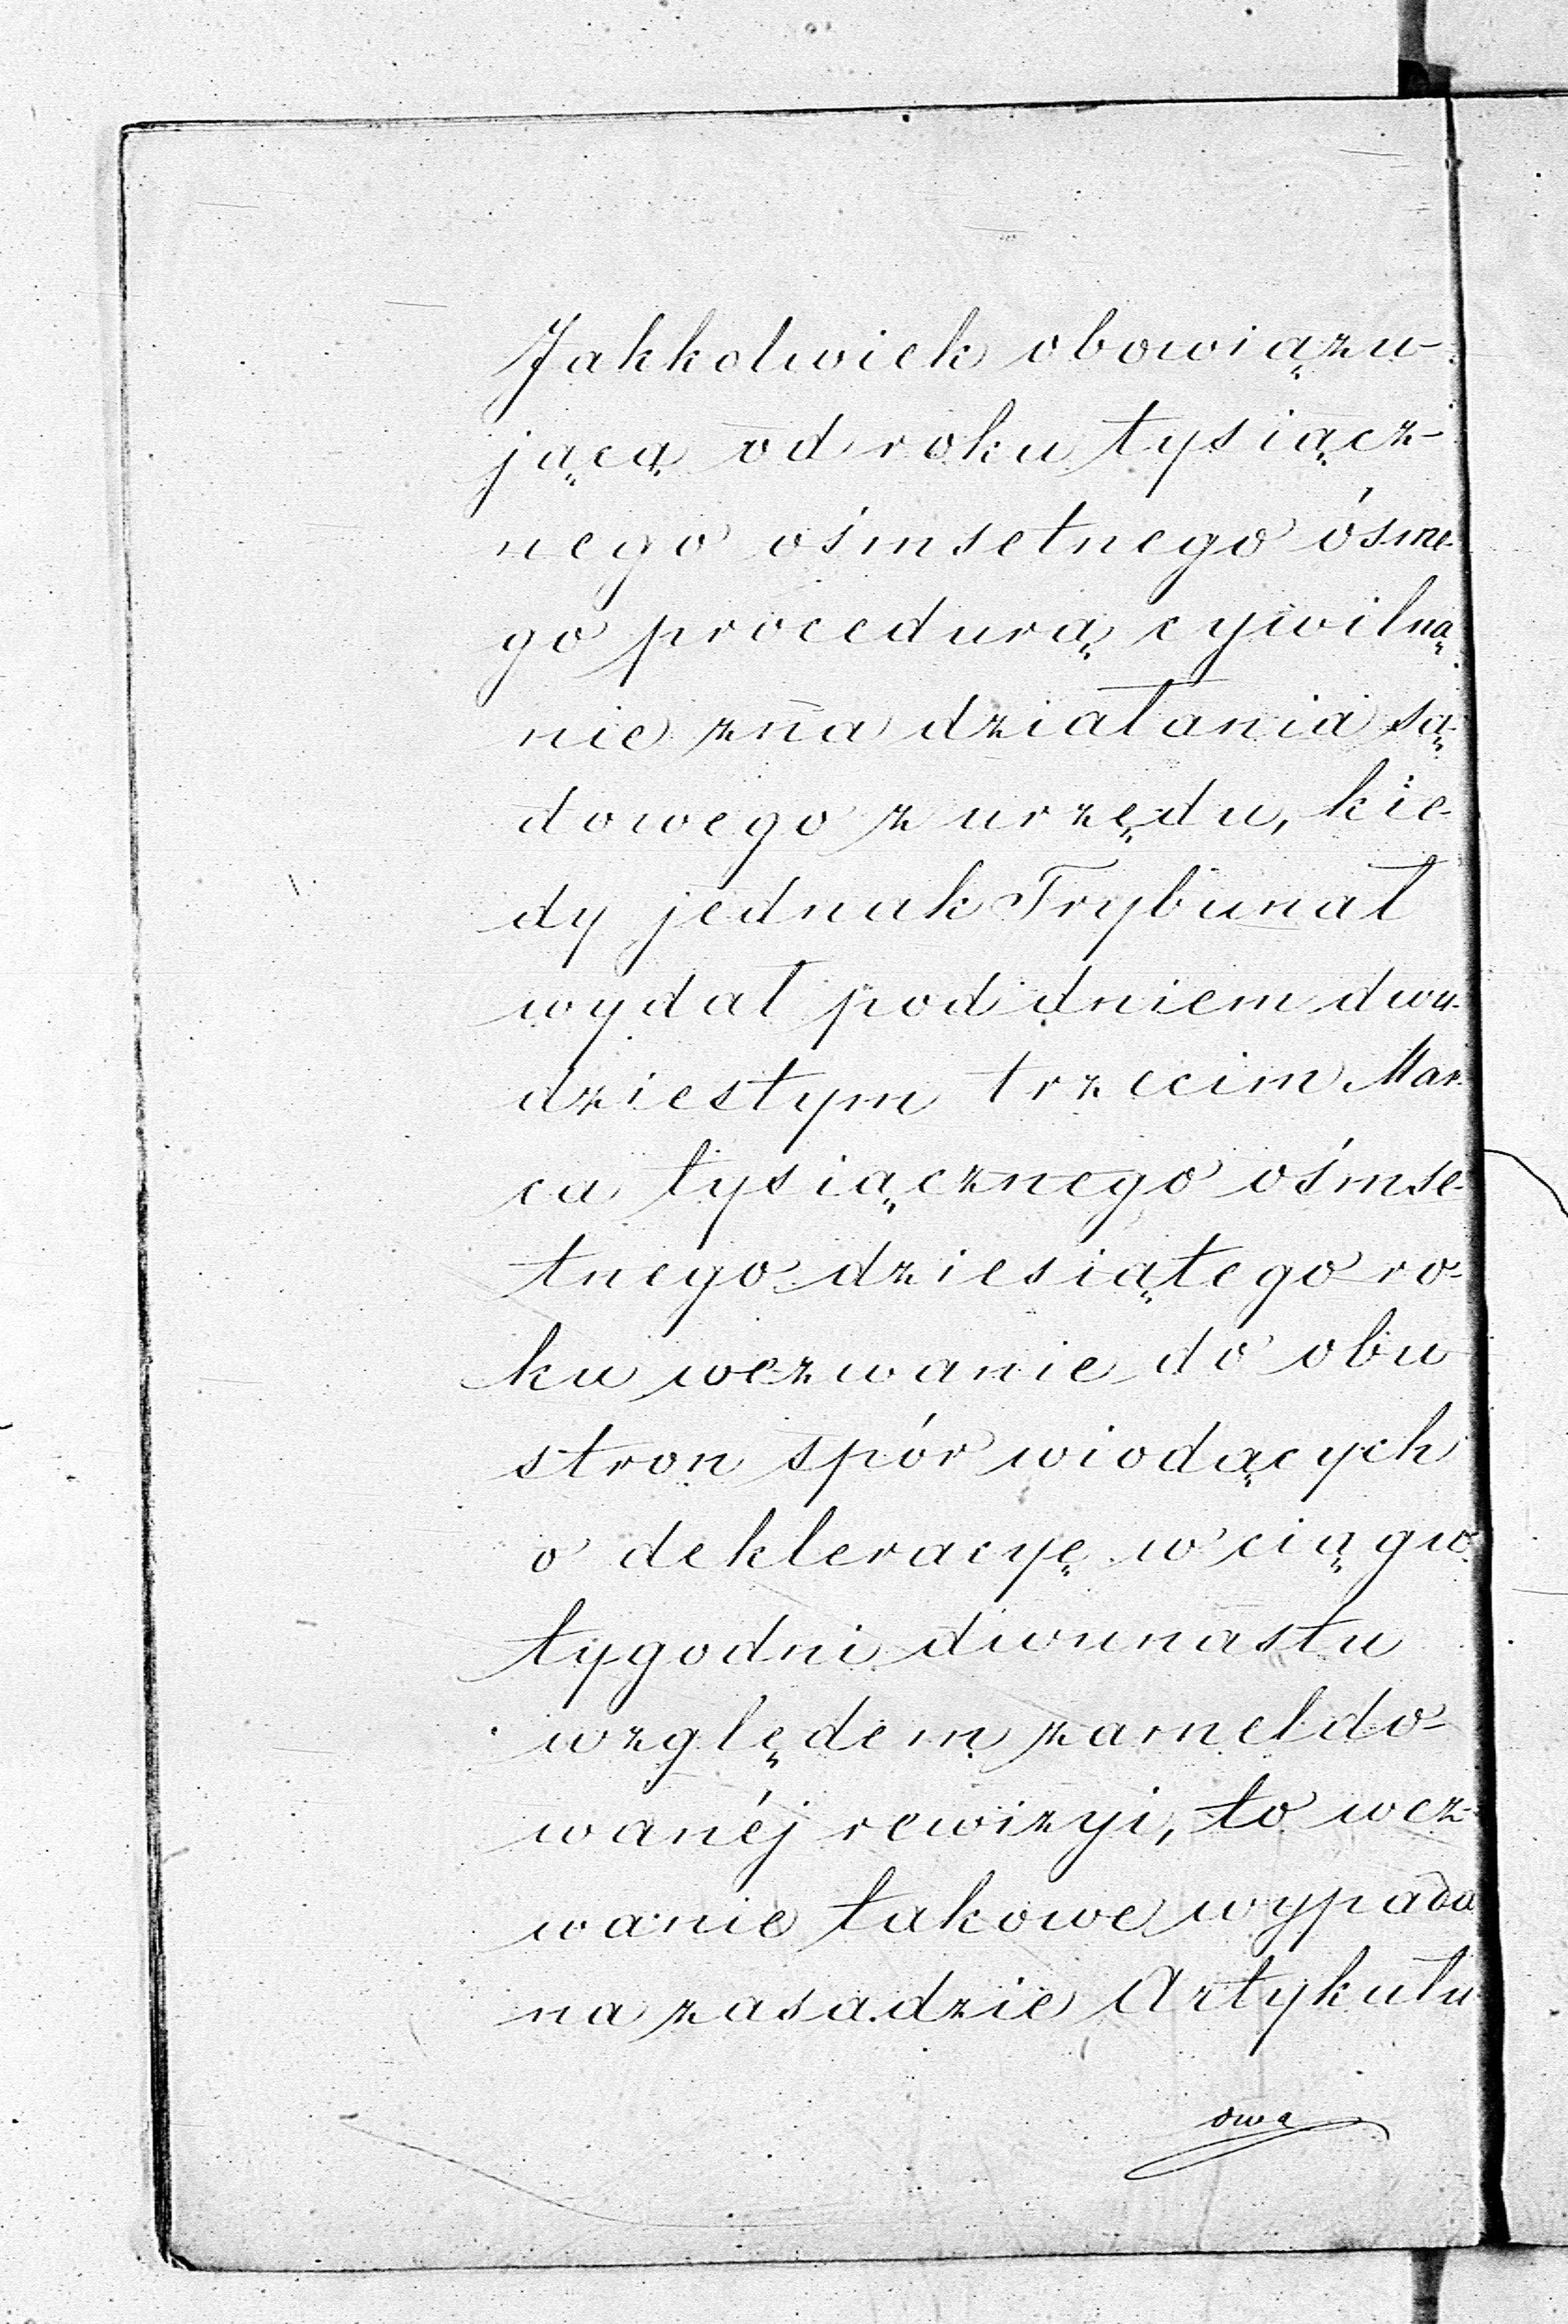 Jakkolwiek obowiązu-
jącą od roku tysiącz-
nego ośmsetnego ósme-
go procedurą cywilną
nie zna działania są-
dowego z urzędu, kie-
dy jednak Trybunał
wydał pod dniem dwu-
dziestym trzecim Mar-
ca tysiącznego ośmse-
tnego dziesiątego ro-
ku wezwanie do obu
stron spór wiodących
o dekleracyę w ciągu
tygodni dwunastu
względem zameldo-
wanéj rewizyi, to wez-
wanie takowe wypada
na zasadzie Artykułu
dwa